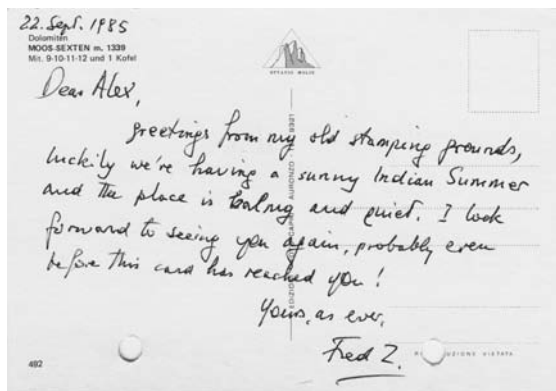 22. Sept. 1985
Dolomiten
MOOS-SEXTEN m. 1339
Mit. 9-10-11-12 und 1 Kofel
Dear Alex,
greetings from my old stamping grounds,
luckily we're having a sunny Indian Summer
and the place is balmy and quiet. I look
forward to seeing you again, probably even
before this card has reached you!
Yours, as ever,
Fred Z.
492